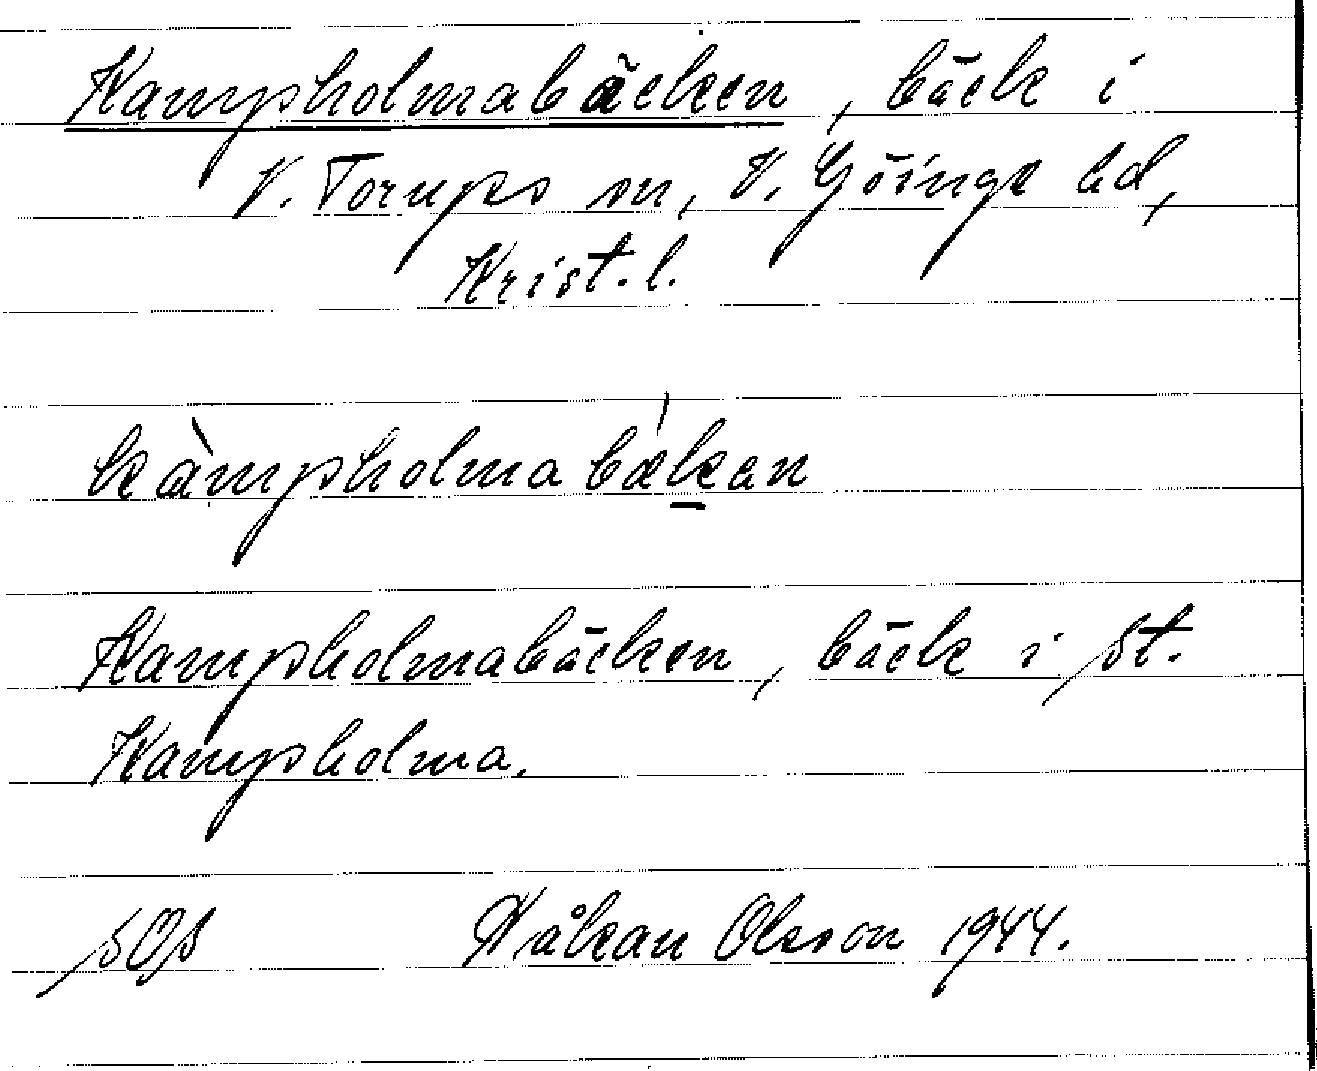 Kampholmabäcken, bäck i
V. Torups sn, V. Göinge hd,
Krist. l.
kàmpholmabǽḵan
Kampholmabäcken, bäck i St.
Kampholma.
SOs Håkan Olsson 1944.